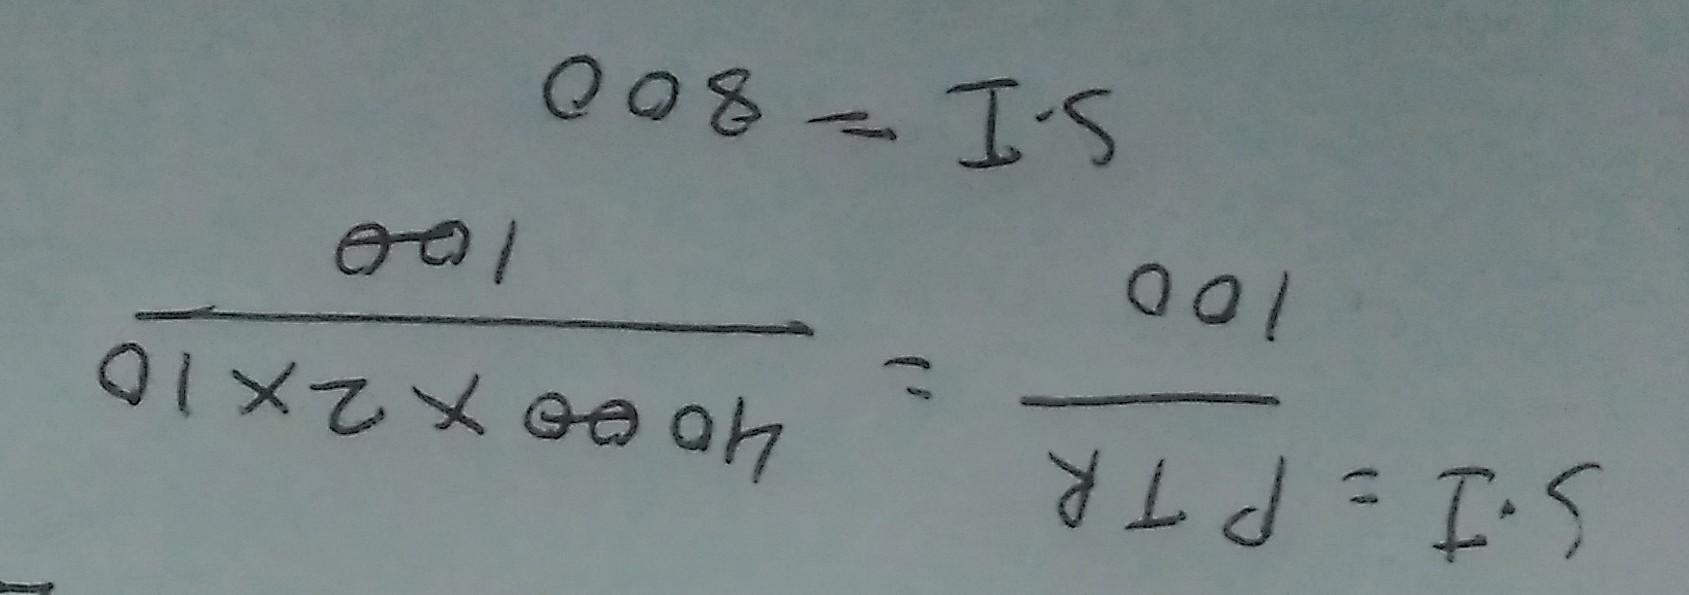 S.I = PTR / 100 = 4000 x 2 x 10 / 100
S.I = 800